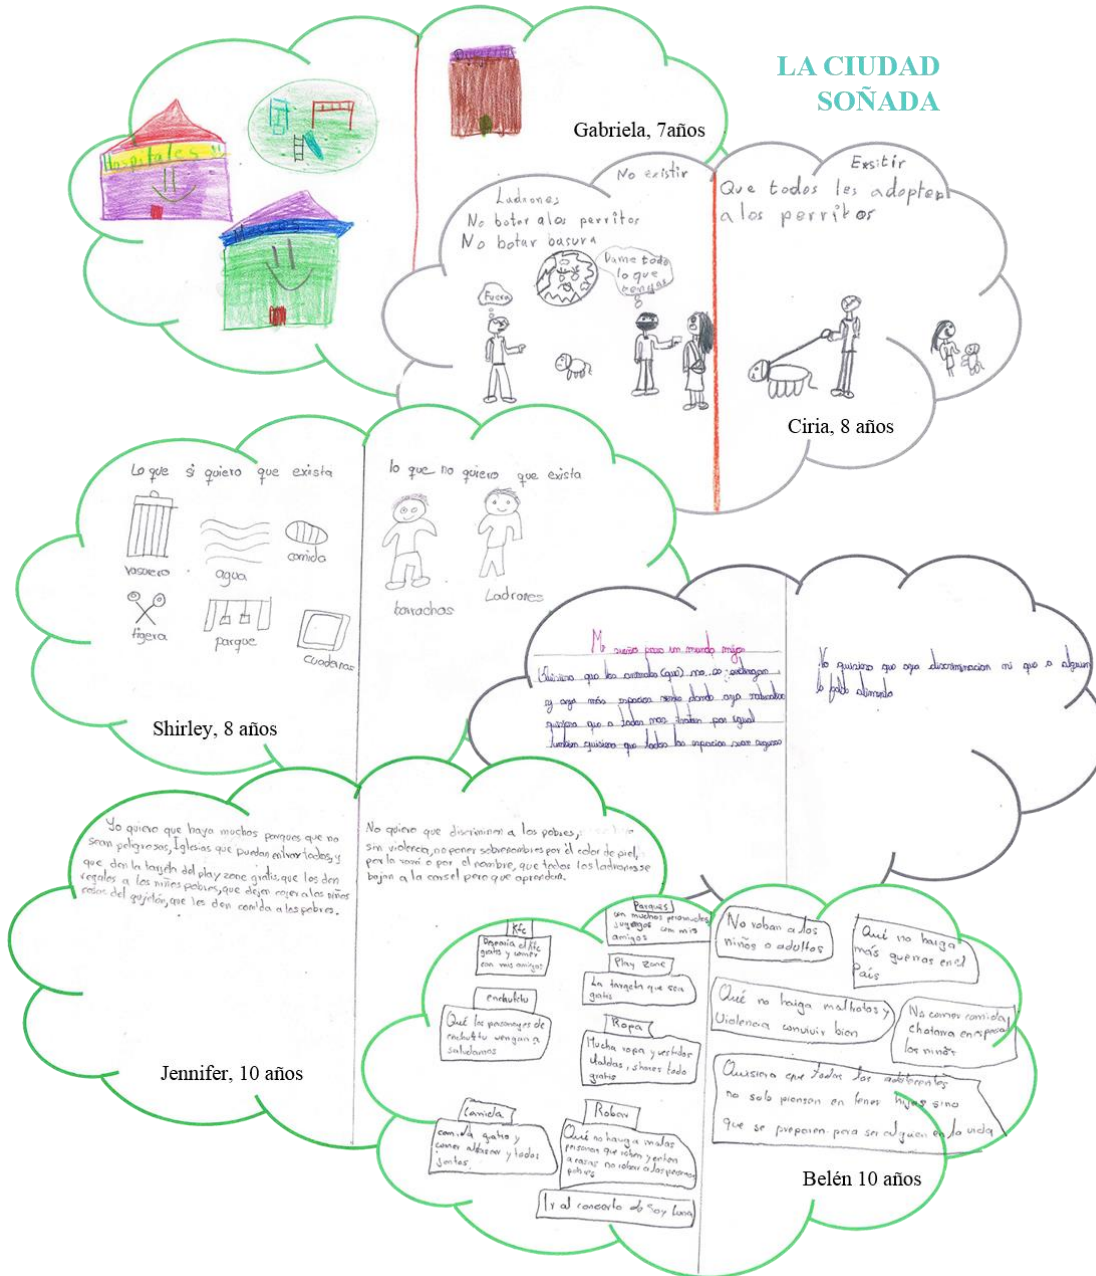 LA CIUDAD
SOÑADA
Hospitales
Gabriela, 7años
No existir
Ladrones
No botar alos perritos
No botar basura
Fuera
Dame todo
lo que
tengas
Exsitir
Que todos les adopten
a los perritos
Ciria, 8 años
Lo que si quiero que exista
vasurero
agua
comida
tigera
parque
cuadernos
lo que no quiero que exista
borrachos
Ladrones
Shirley, 8 años
Mi sueño para un mundo mejor
Quisiera que los animales (que) no se extingan
y aya más espacios verdes donde aya naturaleza
quisiera que a todos nos traten por igual
tambien quisiera que todos los espacios sean seguros
No quisiera que aya discriminacion ni que a alguien
le falte alimento
Yo quiero que haya muchos parques que no
sean peligrosos, Iglesias que puedan entrar todos, y
que den la tarjeta del play zone gratis, que les den
regalos a los niños pobres, que dejen cojer a los niños
cosas del guijelón, que les den comida a los pobres.
No quiero que discriminen a los pobres,
sin violencia, no poner sobrenombres por el color de piel,
por la voz o por el nombre, que todos los ladrones se
bajan a la carsel pero que aprendan.
Jennifer, 10 años
Kfc
gratis y comer
con mis amigos
Parques
con muchos
juegegos con mis
amigos
Play zone
La targeta que sea
gratis
enchufetv
Qué los personages de
enchuftv vengan a
saludarnos
Ropa
Mucha ropa y vestidos
faldas, shores todo
gratis
Comida
comida gratis y
comer y todos
juntos
Roban
Qué no hauga malas
personas que roben y entren
a casas no roban a las personas
pobres
Ir al concierto de Soy Luna
No roban a los
niños o adultos
Qué no haiga
más guerras en el
País
Qué no haiga maltratos y
Violencia convivir bien
No comer comida
chatarra en especial
los niños
Quisiera que todos los adolecentes
no solo piensen en tener hijos sino
que se preparen para ser alguien en la vida
Belén 10 años